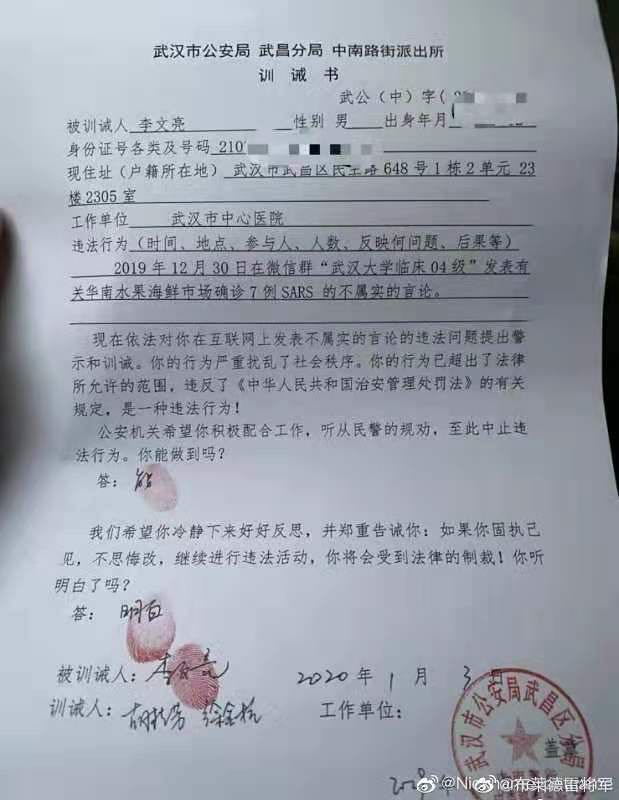 武汉市公安局 武昌分局 中南路街派出所
训 诫 书
武公（中）字（
被训诫人 李文亮 性别 男 出身年月
身份证号各类及号码 210
现住址（户籍所在地） 武汉市武昌区民主路 648 号 1 栋 2 单元 23
楼 2305 室
工作单位 武汉市中心医院
违法行为（时间、地点、参与人、人数、反映何问题、后果等）
2019 年 12 月 30 日在微信群“武汉大学临床 04 级”发表有
关华南水果海鲜市场确诊 7 例 SARS 的不属实的言论。
现在依法对你在互联网上发表不属实的言论的违法问题提出警
示和训诫。你的行为严重扰乱了社会秩序。你的行为已超出了法律
所允许的范围，违反了《中华人民共和国治安管理处罚法》的有关
规定，是一种违法行为！
公安机关希望你积极配合工作，听从民警的规劝，至此中止违
法行为。你能做到吗？
答： 能
我们希望你冷静下来好好反思，并郑重告诫你：如果你固执己
见，不思悔改，继续进行违法活动，你将会受到法律的制裁！你听
明白了吗？
答： 明白
被训诫人： 李文亮 2020 年 1 月 3 日
训诫人： 工作单位：
武汉市公安局武昌区分局
盖章
@布莱德雷将军